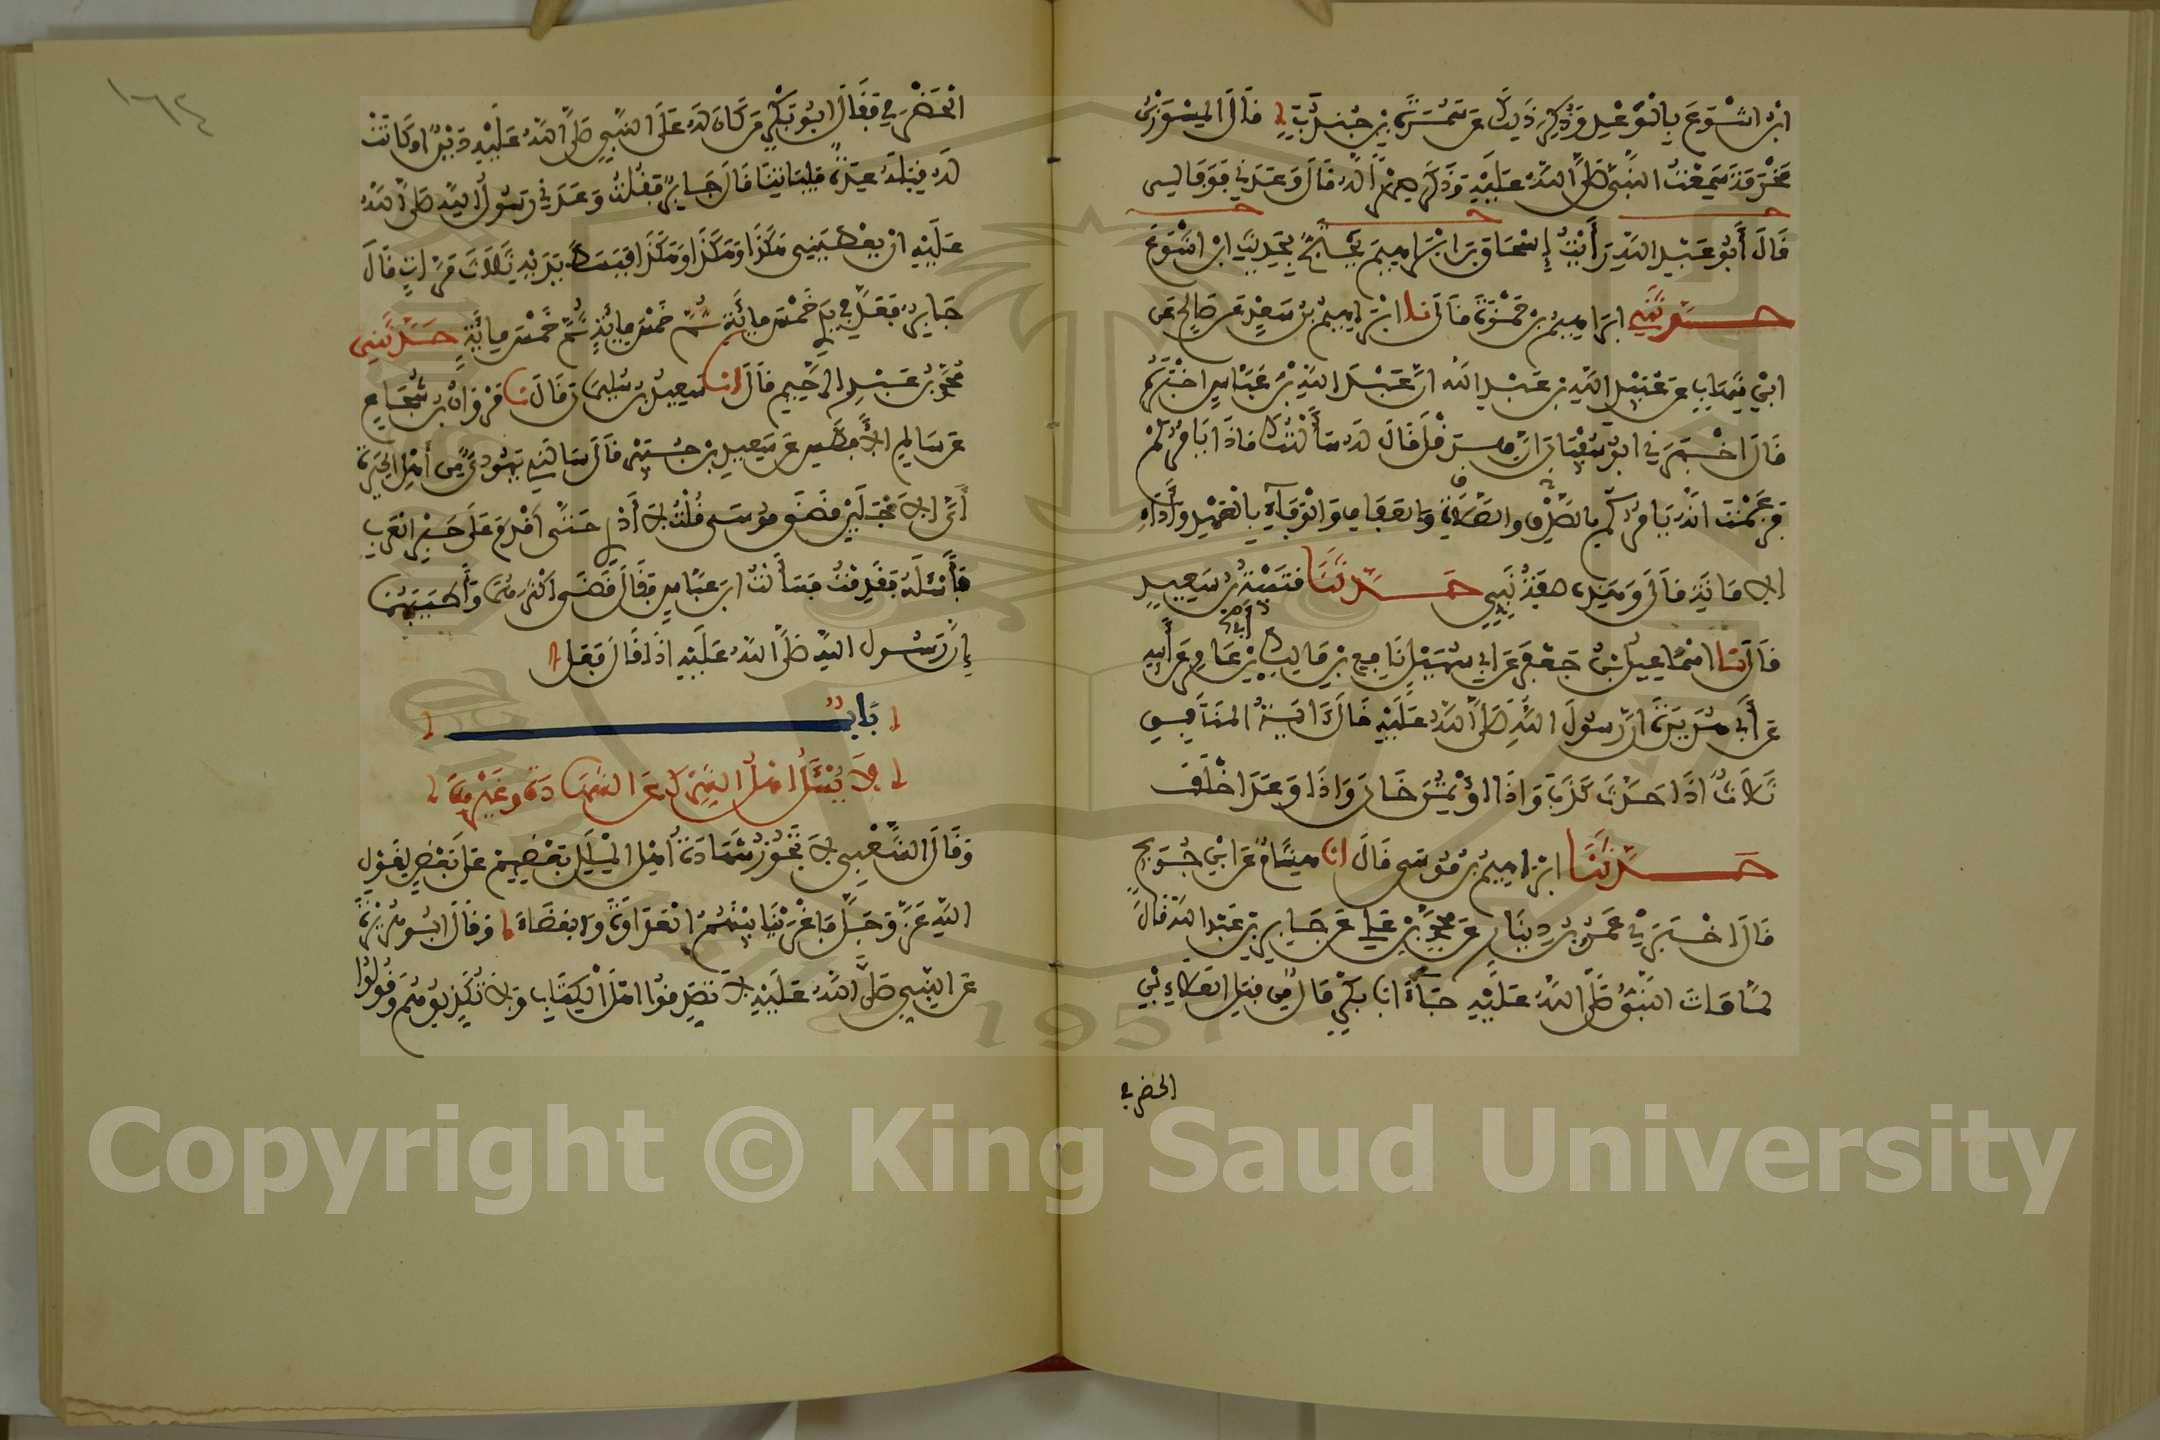 ابن اشوع بالوعد وذكر ذلك عن سمرة بن جندب قال المسور بن
مخرمة سمعت النبي صلى الله عليه وذكر صهرا له قال وعدني فوفا لي
قال أبو عبد الله رأيت إسحاق بن ابراهيم يحتج بحديث ابن اشوع
حدثني ابراهيم بن حمزة قال نا ابراهيم بن سعد عن صالح عن
ابن شهاب عن عبيد الله بن عبد الله ان عبد الله بن عباس اخبره
قال اخبرني ابو سفيان ان هرقل قال له سألتك ماذا يامركم
فزعمت انه يامركم بالصدق والصلاة والعفاف والوفاء بالعهد وأداء
الامانة قال وهذه صفة نبي حدثنا قتيبة بن سعيد
قال نا اسماعيل بن جعفر عن ابي سهيل نافع بن مالك بن ابي عامر عن أبيه
عن أبي هريرة ان رسول الله صلى الله عليه قال آية المنافق
ثلاث اذا حدث كذب واذا اؤتمن خان واذا وعد اخلف
حدثنا ابراهيم بن موسى قال انا هشام عن ابن جريج
قال اخبرني عمرو بن دينار عن محمد بن علي عن جابر بن عبد الله قال
لما مات النبي صلى الله عليه جاء ابا بكر مال من قبل العلاء بن
الحضرمي
١٦٤
الحضرمي فقال ابو بكر من كان له على النبي صلى الله عليه دين او كانت
له قبله عدة فلياتنا قال جابر فقلت وعدني رسول الله صلى الله
عليه ان يعطيني هكذا وهكذا وهكذا فبسط يديه ثلاث مرات قال
جابر فعد في يدي خمس مائة ثم خمس مائة ثم خمس مائة حدثني
محمد بن عبد الرحيم قال انا سعيد بن سليمان قال نا مروان بن شجاع
عن سالم الأفطس عن سعيد بن جبير قال سالني يهودي من أهل الحيرة
أي الاجلين قضى موسى قلت لا أدري حتى اقدم على حبر العرب
فأسئله فقدمت فسألت ابن عباس فقال قضى اكثرهما وأطيبهما
إن رسول الله صلى الله عليه اذا قال فعل
باب
لا يسئل اهل الشرك عن الشهادة وغيرها
وقال الشعبي لا تجوز شهادة أهل الملل بعضهم على بعض لقول
الله عز وجل فاغرينا بينهم العداوة والبغضاء وقال ابو هريرة
عن النبي صلى الله عليه لا تصدقوا اهل الكتاب ولا تكذبوهم وقولوا
Copyright © King Saud University
1957